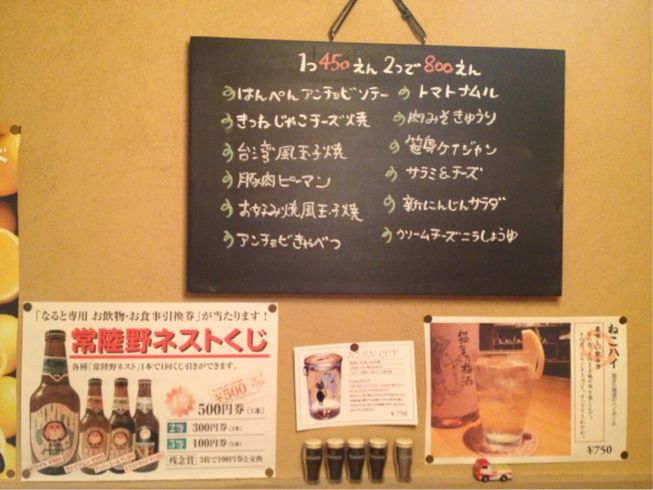 1つ450えん 2つで800えん
はんぺんアンチョビソテー
きつねじゃこチーズ焼
台湾風玉子焼
豚肉ピーマン
お好み焼風玉子焼
アンチョビきゃべつ
トマトナムル
肉みそきゅうり
笹身ケイジャン
サラミ&チーズ
新にんじんサラダ
クリームチーズニラしょうゆ
「なると専用 お飲物・お食事引換券」が当たります!
常陸野ネストくじ
各種「常陸野ネスト」1本で1回くじ引きができます。
¥500
500円券(1本)
2等 300円券
3等 100円券
残念賞 3枚で100円券と交換
¥750
ねこハイ
美味しい飲み方
猫
梅酒
¥750